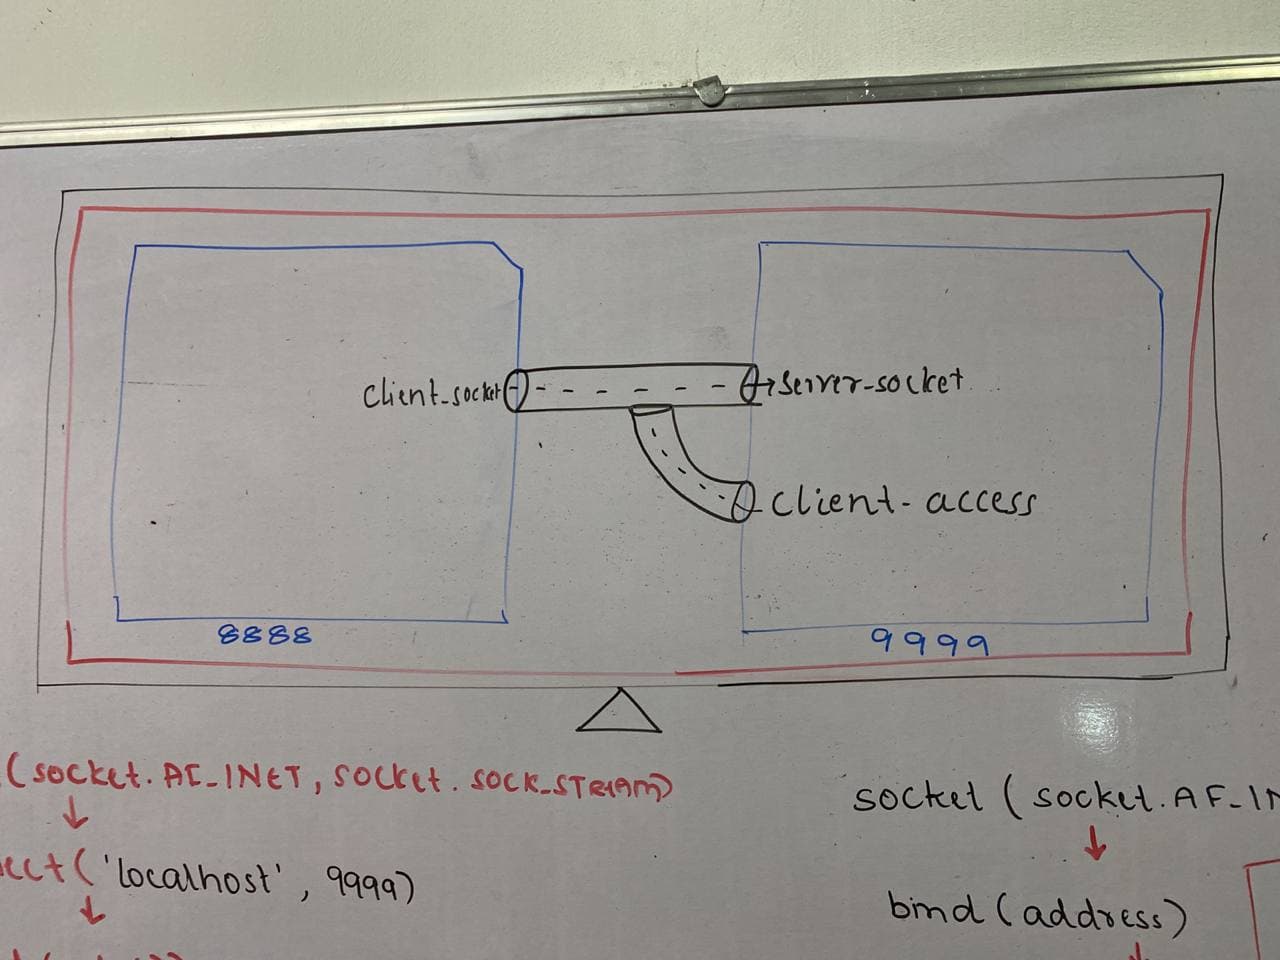 client_socket
server-socket
client-access
8888
9999
(socket.AF_INET, socket.SOCK_STREAM)
ect('localhost', 9999)
socket (socket.AF-IN
bind (address)